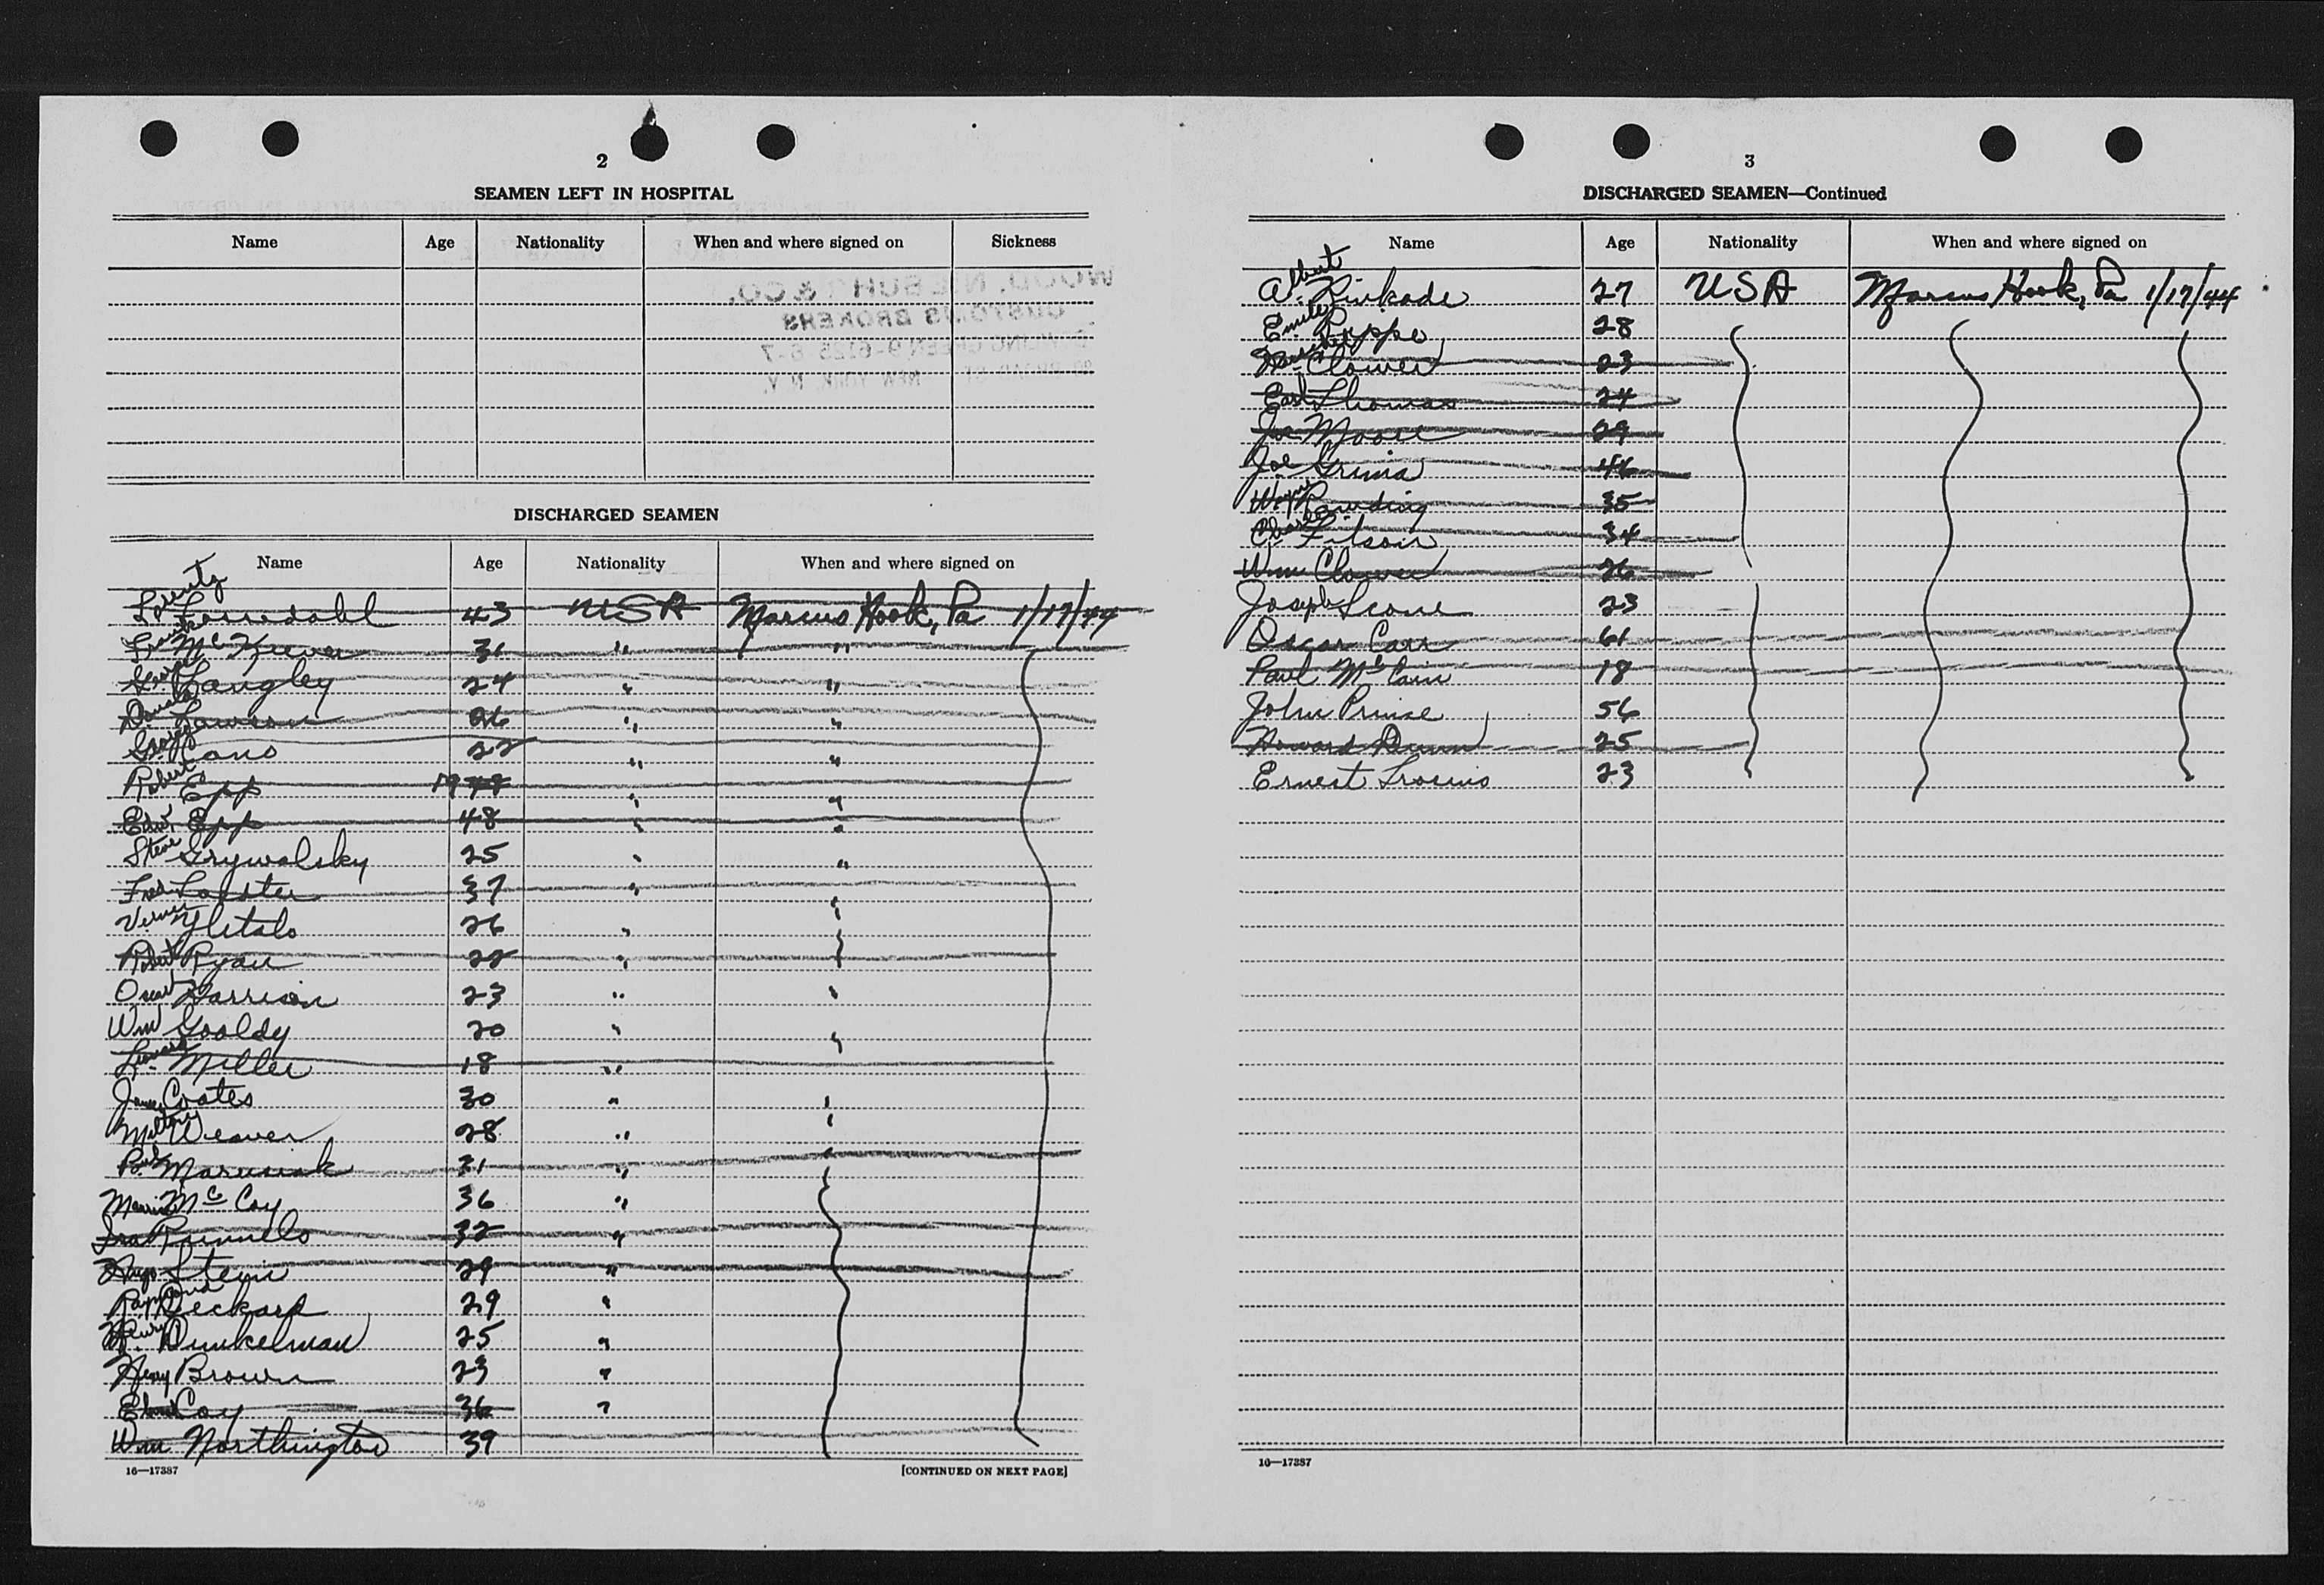 2
SEAMEN LEFT IN HOSPITAL
Name Age Nationality When and where signed on Sickness
DISCHARGED SEAMEN
Name Age Nationality When and where signed on
43 USA Marcus Hook, Pa 1/17/44
Frank McKeever 31 " "
George Langley 24 " "
Donald Lawson 26 " "
George Cano 22 " "
Robert Epp 19 48 " "
Edw. Epp 48 " "
Steve Grywalsky 25 " "
Fred 37 " "
Verner Ylitalo 26 " "
Robert Ryan 22 " "
Oscar Harrison 23 " "
Wm Gooldy 20 " "
Leonard L. Miller 18 "
James Coates 30 " "
Milton Weaver 28 " "
Marusiak 31 " "
McCoy 36 "
Ira Runnels 32 "
Hugo Stein 29 "
Raymond Deckard 29 "
Henry H. Dunkelman 25 "
Henry Brown 23 "
Coy 36 "
Wm Northington 39
16—17387 [CONTINUED ON NEXT PAGE]
3
DISCHARGED SEAMEN—Continued
Name Age Nationality When and where signed on
Albert A. Kinkade 27 USA Marcus Hook, Pa 1/17/44
Emile E. 28
Clower 23
Earl Thomas 24
Joe Moore 29
Joe Grima 46
Wayne 35
Charles 34
Wm Clower 26
Joseph Leone 23
Oscar Carr 61
Paul McCain 18
John Prinse 56
Howard Dunn 25
Ernest 23
16—17387